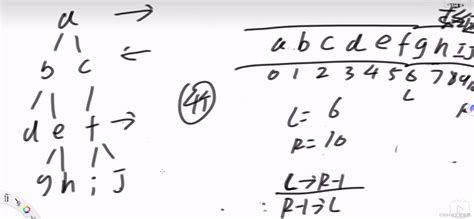 a
b c
d e f
g h i J
44
a b c d e f g h I J
0 1 2 3 4 5 6 7 8 9
L
L = 6
R = 10
L → R-1
R-1 → L